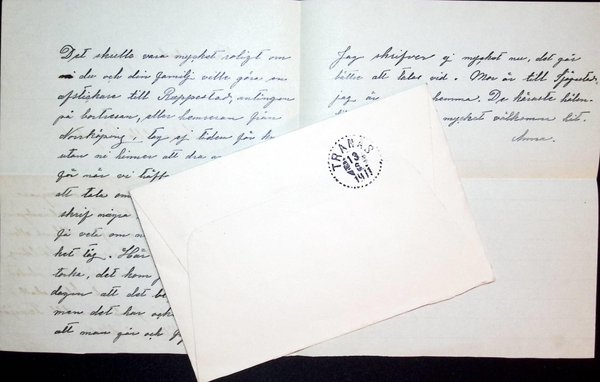 Det skulle vara mycket roligt om
ni du och din familj ville göra en
afstickare till Repperstad, antingen
på bortresan, eller hemresan från
Norrköping, tag ej tiden för kn
utan ni hinner att dra
går när vi träff
att tala om
skrif några
få veta om n
ket tåg. Här
torka, det kom
dagen att det be
men det har ock
att man går och
Jag skrifver ej mycket nu, det går
bättre att talas vid. Mor är till
jag är hemma. De käraste helsn
mycket välkomna hit.
Anna.
TRANÅS
13
1911